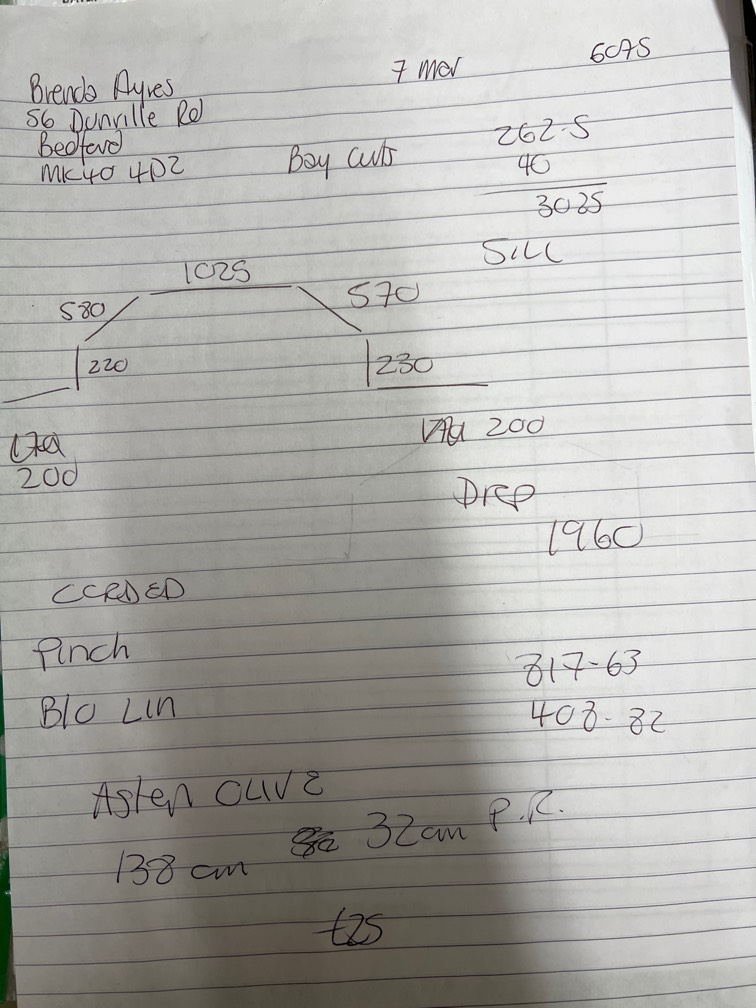 7 Mar
6075
Brenda Ayres
56 Dunville Rd
Bedford
MK40 4DZ
Bay Cuts
262.5
40
3025
SILL
1025
580
570
220
230
200
200
Drop
1960
CORDED
Pinch
B/O Lin
817-63
408-82
Asten OLIVE
138 cm
32cm P.R.
£25